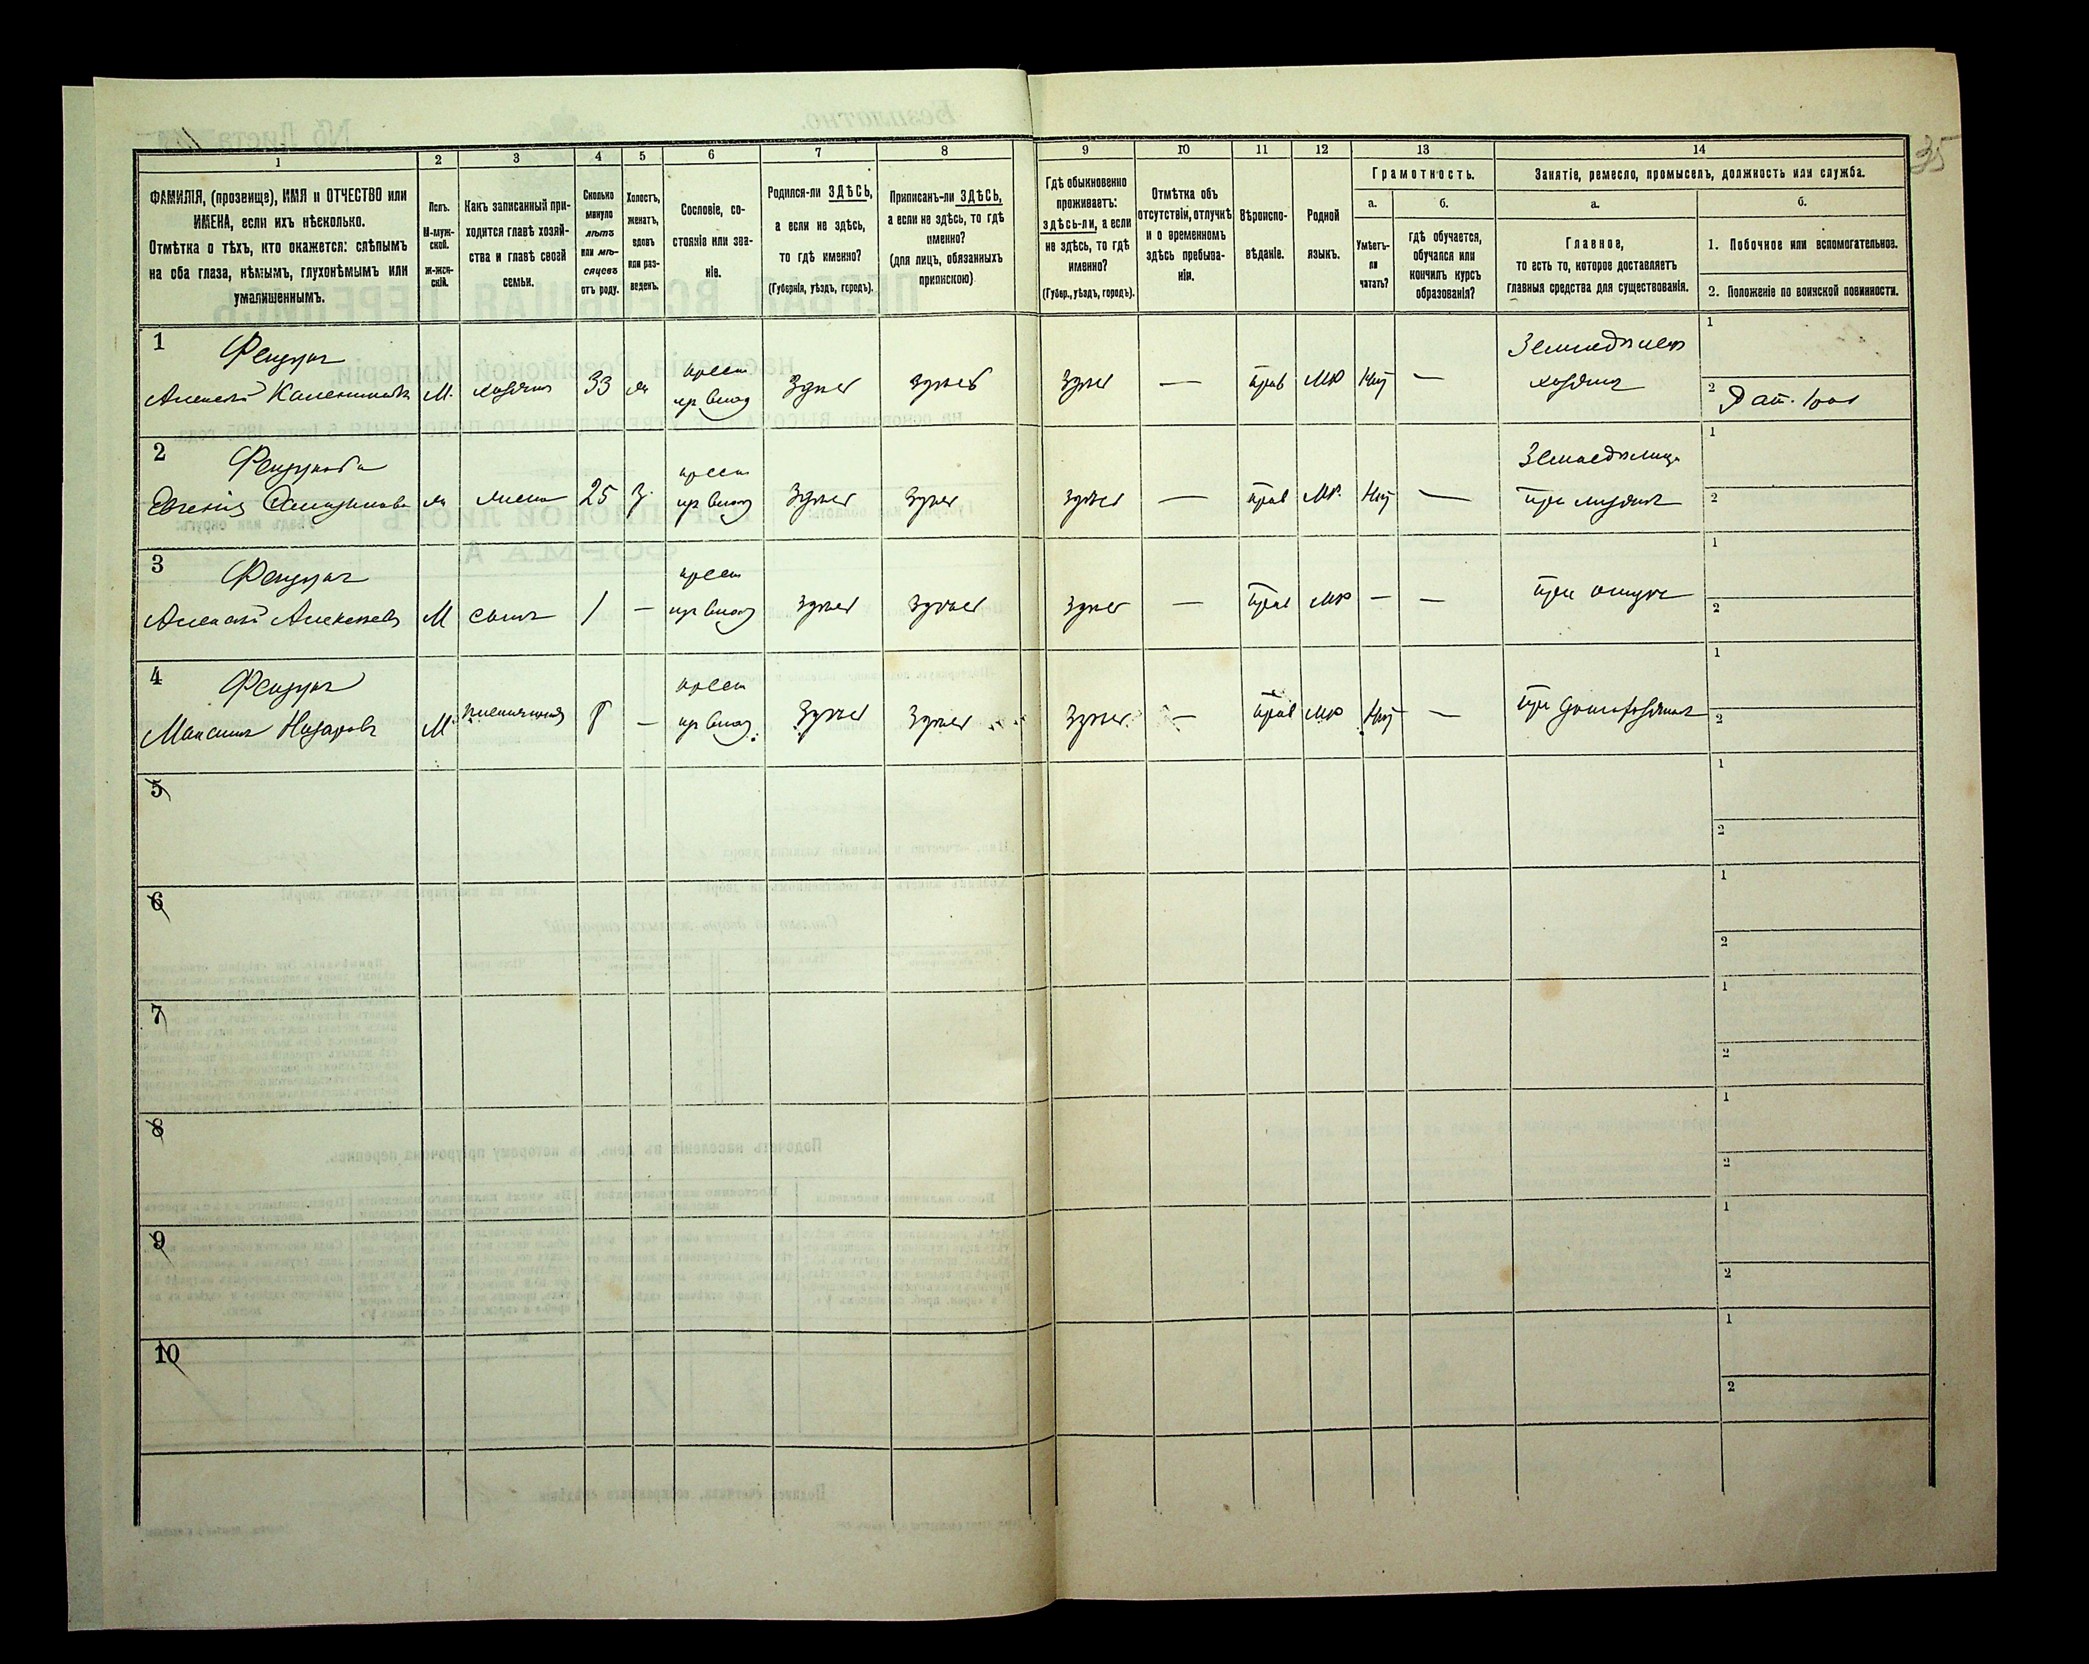 35
1
2
3
4
5
6
7
8
9
10
11
12
13
14
ФАМИЛІЯ, (прозвище), ИМЯ и ОТЧЕСТВО или
ИМЕНА, если ихъ нѣсколько.
Отмѣтка о тѣхъ, кто окажется: слѣпымъ
на оба глаза, нѣмымъ, глухонѣмымъ или
умалишеннымъ.
Полъ.
М-муж-
ской.
Ж-жен-
скій.
Какъ записанный при-
ходится главѣ хозяй-
ства и главѣ своей
семьи.
Сколько
минуло
лѣтъ
или мѣ-
сяцевъ
отъ роду.
Холостъ,
женатъ,
вдовъ
или раз-
веденъ.
Сословіе, со-
стояніе или зва-
ніе.
Родился-ли ЗДѢСЬ,
а если не здѣсь,
то гдѣ именно?
(Губернія, уѣздъ, городъ).
Приписанъ-ли ЗДѢСЬ,
а если не здѣсь, то гдѣ
именно?
(для лицъ, обязанныхъ
припискою)
Гдѣ обыкновенно
проживаетъ:
здѣсь-ли, а если
не здѣсь, то гдѣ
именно?
(Губер., уѣздъ, городъ).
Отмѣтка объ
отсутствіи, отлучкѣ
и о временномъ
здѣсь пребыва-
ніи.
Вѣроиспо-
вѣданіе.
Родной
языкъ.
Грамотность.
а.
б.
Умѣетъ-
ли
читать?
гдѣ обучается,
обучался или
кончилъ курсъ
образованія?
Занятіе, ремесло, промыселъ, должность или служба.
а.
б.
Главное,
то есть то, которое доставляетъ
главныя средства для существованія.
1. Побочное или вспомогательное.
2. Положеніе по воинской повинности.
1
Алексѣй
М.
хозяинъ
33
ж
крест
здѣсь
здѣсь
здѣсь
—
прав
мр
нѣтъ
—
Земледѣлец
хозяинъ
1
2
2
Евгенія
ж
жена
25
з.
крест
здѣсь
здѣсь
здѣсь
—
прав
мр.
нѣтъ
—
1
2
3
Алексѣй Алексѣевъ
М
сынъ
1
—
крест
здѣсь
здѣсь
здѣсь
—
прав
мр
—
—
при отцѣ
1
2
4
Максимъ Назаровъ
М
племянникъ
8
—
крест
здѣсь
здѣсь
здѣсь
—
прав
мр
нѣтъ
—
1
2
5
1
2
6
1
2
7
1
2
8
1
2
9
1
2
10
1
2